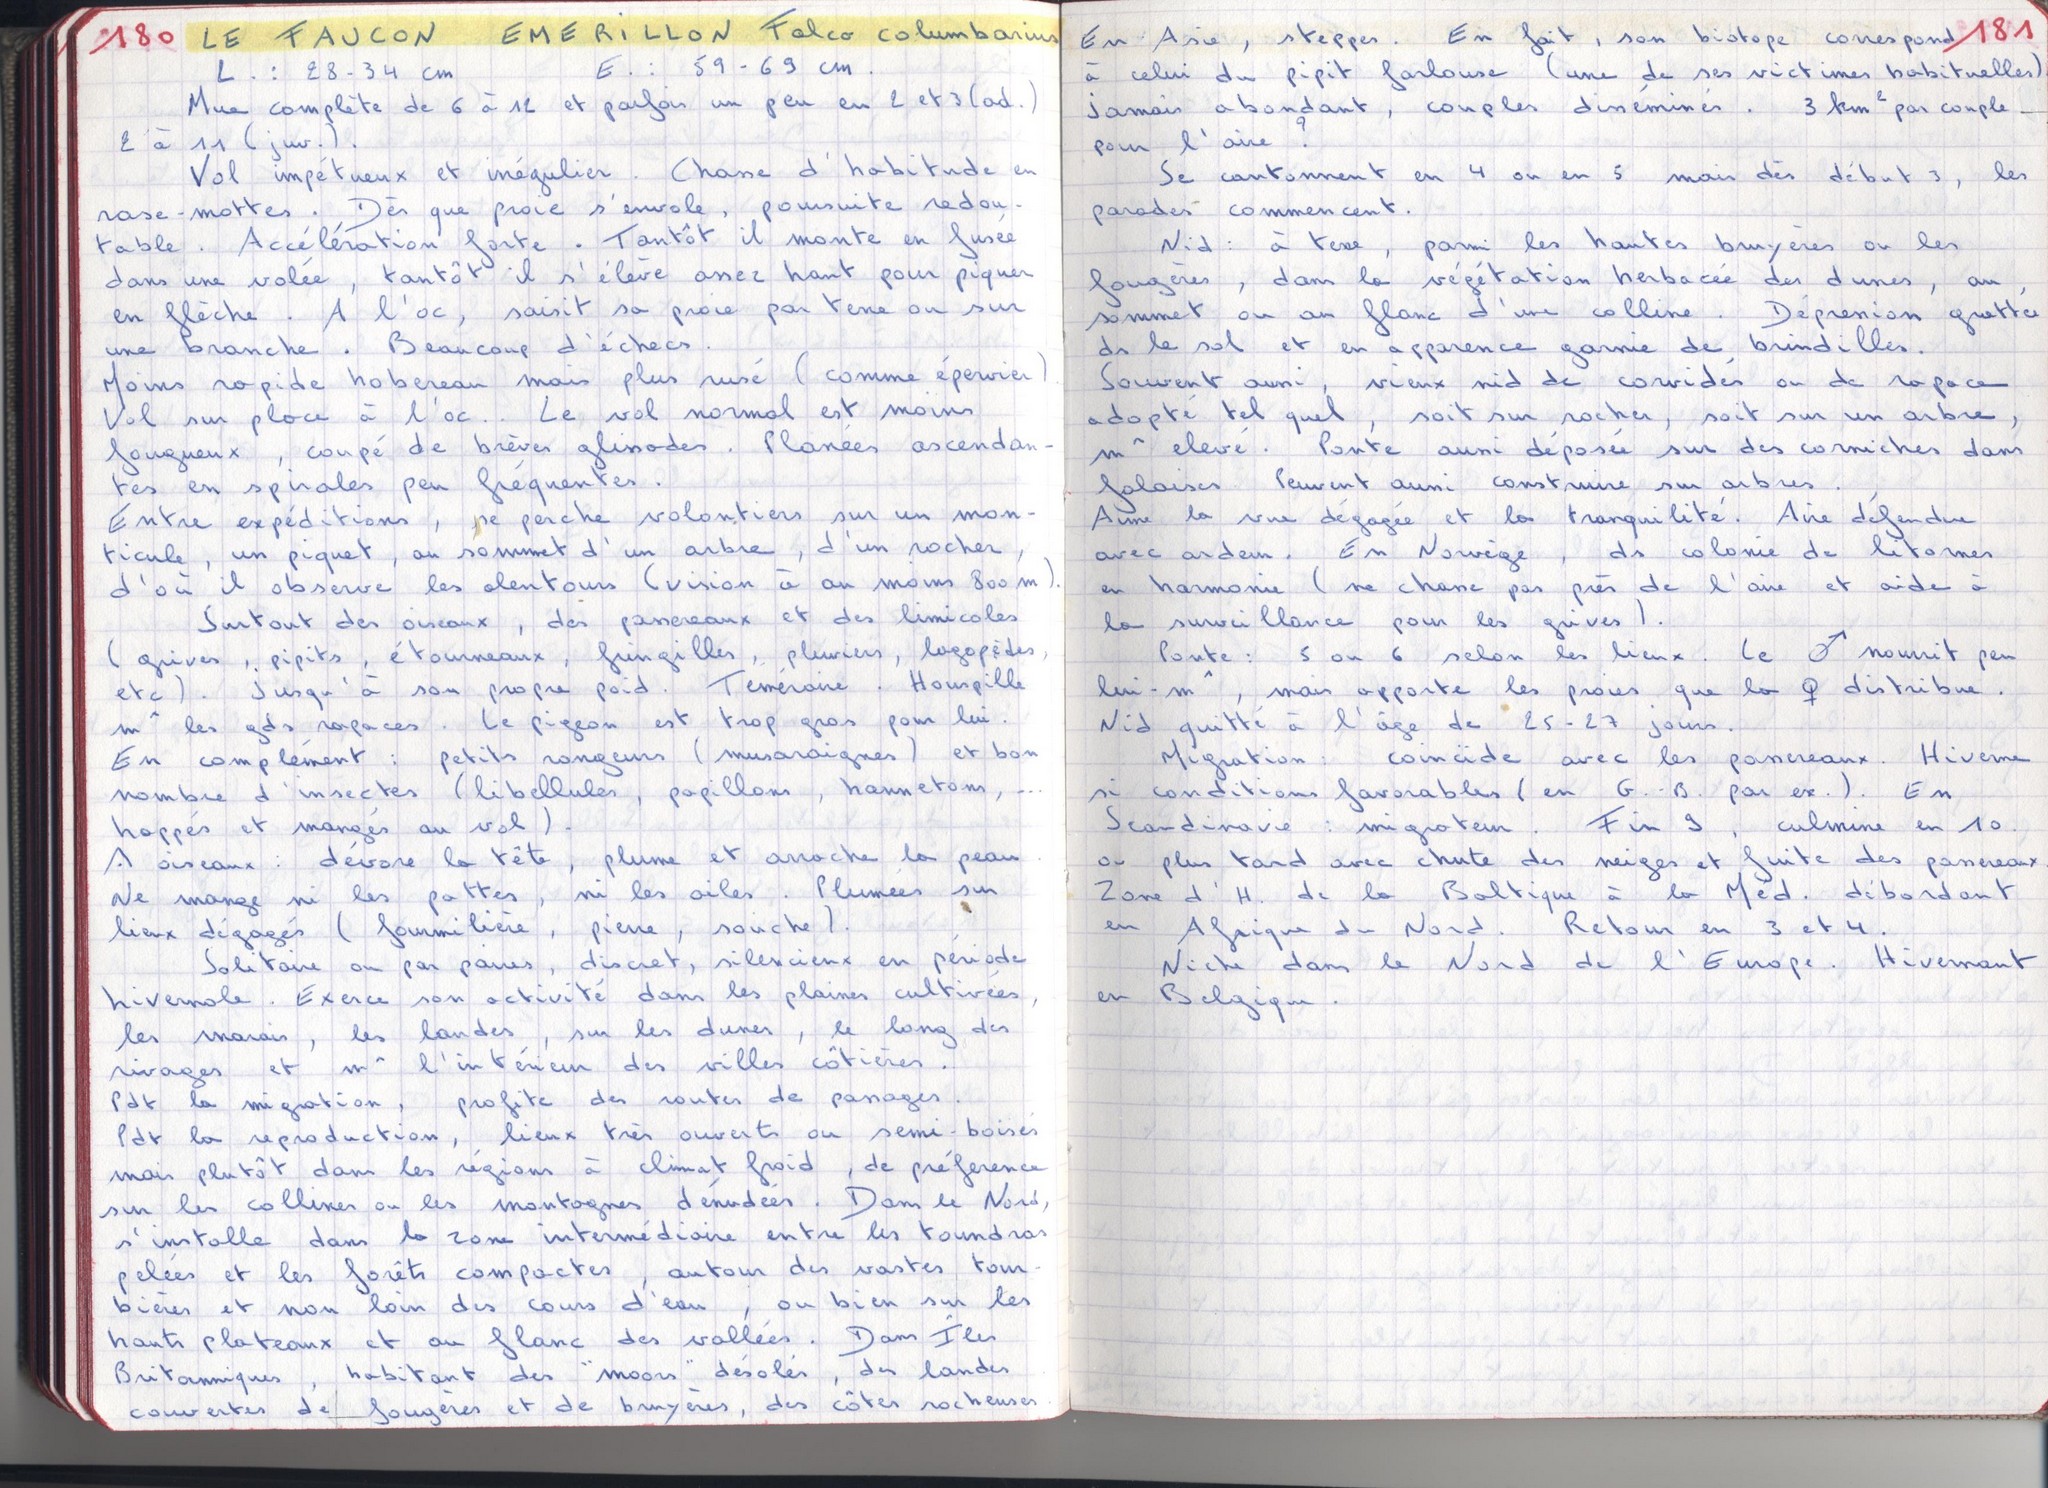 180 LE FAUCON EMERILLON Falco columbarius
L. : 28-34 cm E. : 59-69 cm.
Mue complète de 6 à 12 et parfois un peu en 2 et 3 (ad.)
2 à 11 (juv.).
Vol impétueux et irrégulier. Chasse d'habitude en
rase-mottes. Dès que proie s'envole, poursuite redou-
table. Accélération forte. Tantôt il monte en fusée
dans une volée, tantôt il s'élève assez haut pour piquer
en flèche. A l'oc, saisit sa proie par terre ou sur
une branche. Beaucoup d'échecs.
Moins rapide hobereau mais plus rusé (comme épervier).
Vol sur place à l'oc.. Le vol normal est moins
fougueux, coupé de brèves glissades. Planées ascendan-
tes en spirales peu fréquentes.
Entre expéditions, se perche volontiers sur un mon-
ticule, un piquet, au sommet d'un arbre, d'un rocher,
d'où il observe les alentours (vision à au moins 800 m).
Surtout des oiseaux, des passereaux et des limicoles
(grives, pipits, étourneaux, fringilles, pluviers, lagopèdes,
etc). Jusqu'à son propre poid. Téméraire. Houspille
m^ les gds rapaces. Le pigeon est trop gros pour lui.
En complément : petits rongeurs (musaraignes) et bon
nombre d'insectes (libellules, papillons, hannetons, ...
happés et mangés au vol).
A oiseaux : dévore la tête, plume et arrache la peau.
Ne mange ni les pattes, ni les ailes. Plumées sur
lieux dégagés (fourmilière, pierre, souche).
Solitaire ou par paires, discret, silencieux en période
hivernale. Exerce son activité dans les plaines cultivées,
les marais, les landes, sur les dunes, le long des
rivages et m^ l'intérieur des villes côtières.
Pdt la migration, profite des routes de passages.
Pdt la reproduction, lieux très ouverts ou semi-boisés
mais plutôt dans les régions à climat froid, de préférence
sur les collines ou les montagnes dénudées. Dans le Nord,
s'installe dans la zone intermédiaire entre les toundras
pelées et les forêts compactes, autour des vastes tour-
bières et non loin des cours d'eau, ou bien sur les
hauts plateaux et au flanc des vallées. Dans Îles
Britanniques, habitant des "moors" désolés, des landes
couvertes de fougères et de bruyères, des côtes rocheuses.
En Asie, steppes. En fait, son biotope correspond 181
à celui du pipit farlouse (une de ses victimes habituelles)
Jamais abondant, couples disséminés. 3 km² par couple
pour l'aire ?
Se cantonnent en 4 ou en 5 mais dès début 3, les
parades commencent.
Nid : à terre, parmi les hautes bruyères ou les
fougères, dans la végétation herbacée des dunes, au
sommet ou au flanc d'une colline. Dépression grattée
ds le sol et en apparence garnie de brindilles.
Souvent aussi, vieux nid de corvidés ou de rapace
adopté tel quel, soit sur rocher, soit sur un arbre,
m^ elevé. Ponte aussi déposée sur des corniches dans
falaises. Peuvent aussi construire sur arbres.
Aime la vue dégagée et la tranquilité. Aire défendue
avec ardeur. En Norvège, ds colonie de litornes
en harmonie (ne chasse pas près de l'aire et aide à
la surveillance pour les grives).
Ponte : 5 ou 6 selon les lieux. Le ♂ nourrit peu
lui-m^, mais apporte les proies que la ♀ distribue.
Nid quitté à l'âge de 25-27 jours.
Migration : coïncide avec les passereaux. Hiverne
si conditions favorables (en G.-B. par ex.). En
Scandinavie : migrateur. Fin 9, culmine en 10
ou plus tard avec chute des neiges et fuite des passereaux.
Zone d'H. de la Baltique à la Méd. débordant
en Afrique du Nord. Retour en 3 et 4.
Niche dans le Nord de l'Europe. Hivernant
en Belgique.